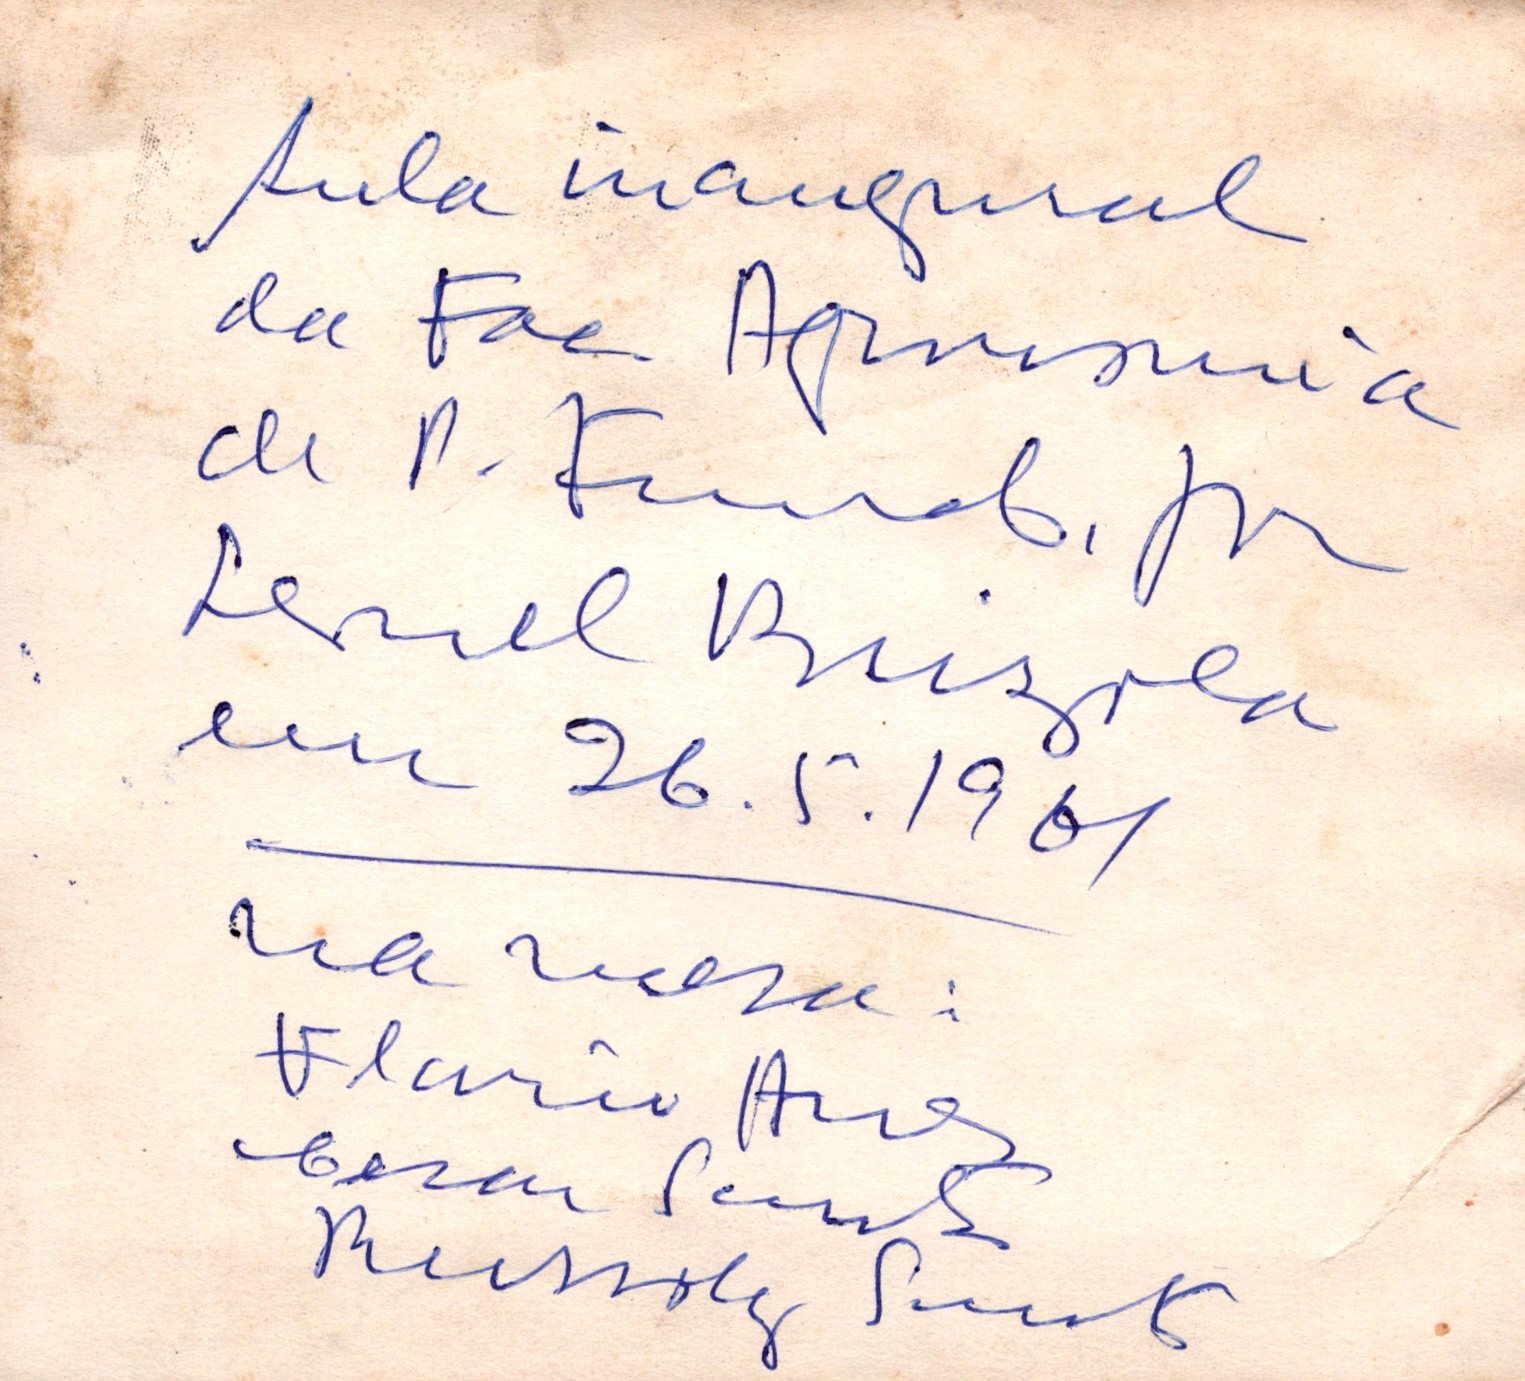 Aula inaugural
da Fac. Agronomia
de P. Fundo, por
Leonel Brizola
em 26.5.1961
na mesa:
Flavio Anes
Cesar Santos
Russoly Santos